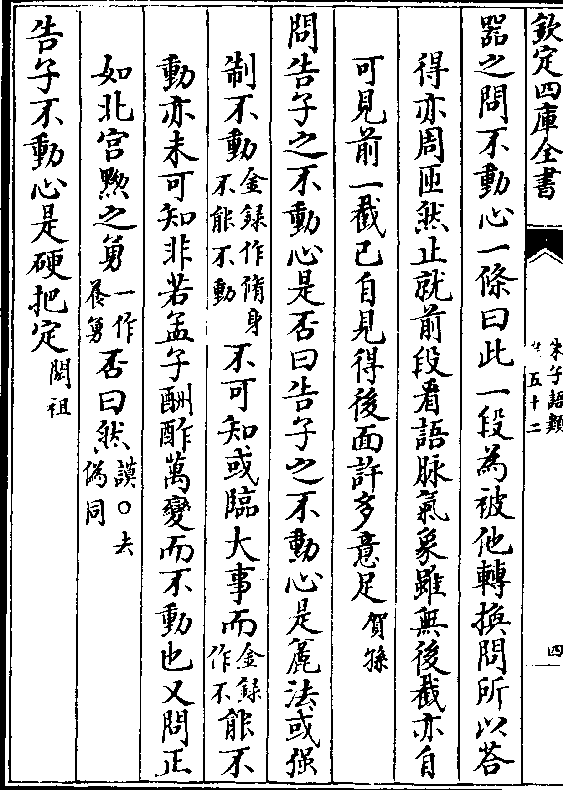 欽定四庫全書
朱子語類
卷五十二
四
器之問不動心一條曰此一段為被他轉換問所以荅
得亦周匝然止就前段看語脉氣象雖無後截亦自
可見前一截已自見得後面許多意足賀孫
問告子之不動心是否曰告子之不動心是麄法或强
制不動金録作脩身不能不動不可知或臨大事而金録作不能不
動亦未可知非若孟子酬酢萬變而不動也又問正
如北宫黝之勇一作養勇否曰然謨○去偽同
告子不動心是硬把定閎祖